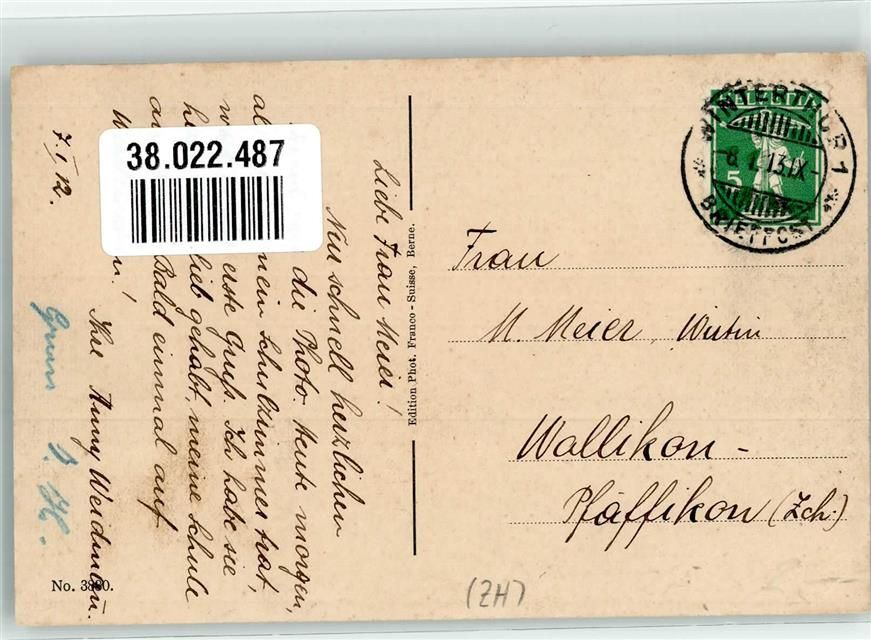 Liebe Frau Meier!
Nun schnell herzlichen
die Photo. Heute morgen,
als mein Schulzimmer trat,
erste Gruß. Ich habe sie
lieb gehabt, meine Schule
Bald einmal auf
Ihre Anny Weidmann.
7. I. 12.
38.022.487
Edition Phot. Franco-Suisse, Berne.
No. 3880.
HELVETIA
5
WINTERTHUR 1
8. 1. 13. IX-
BRIEFPOST
Frau
M. Meier, Wirtin
Wallikon -
Pfäffikon (Zch.)
(ZH)